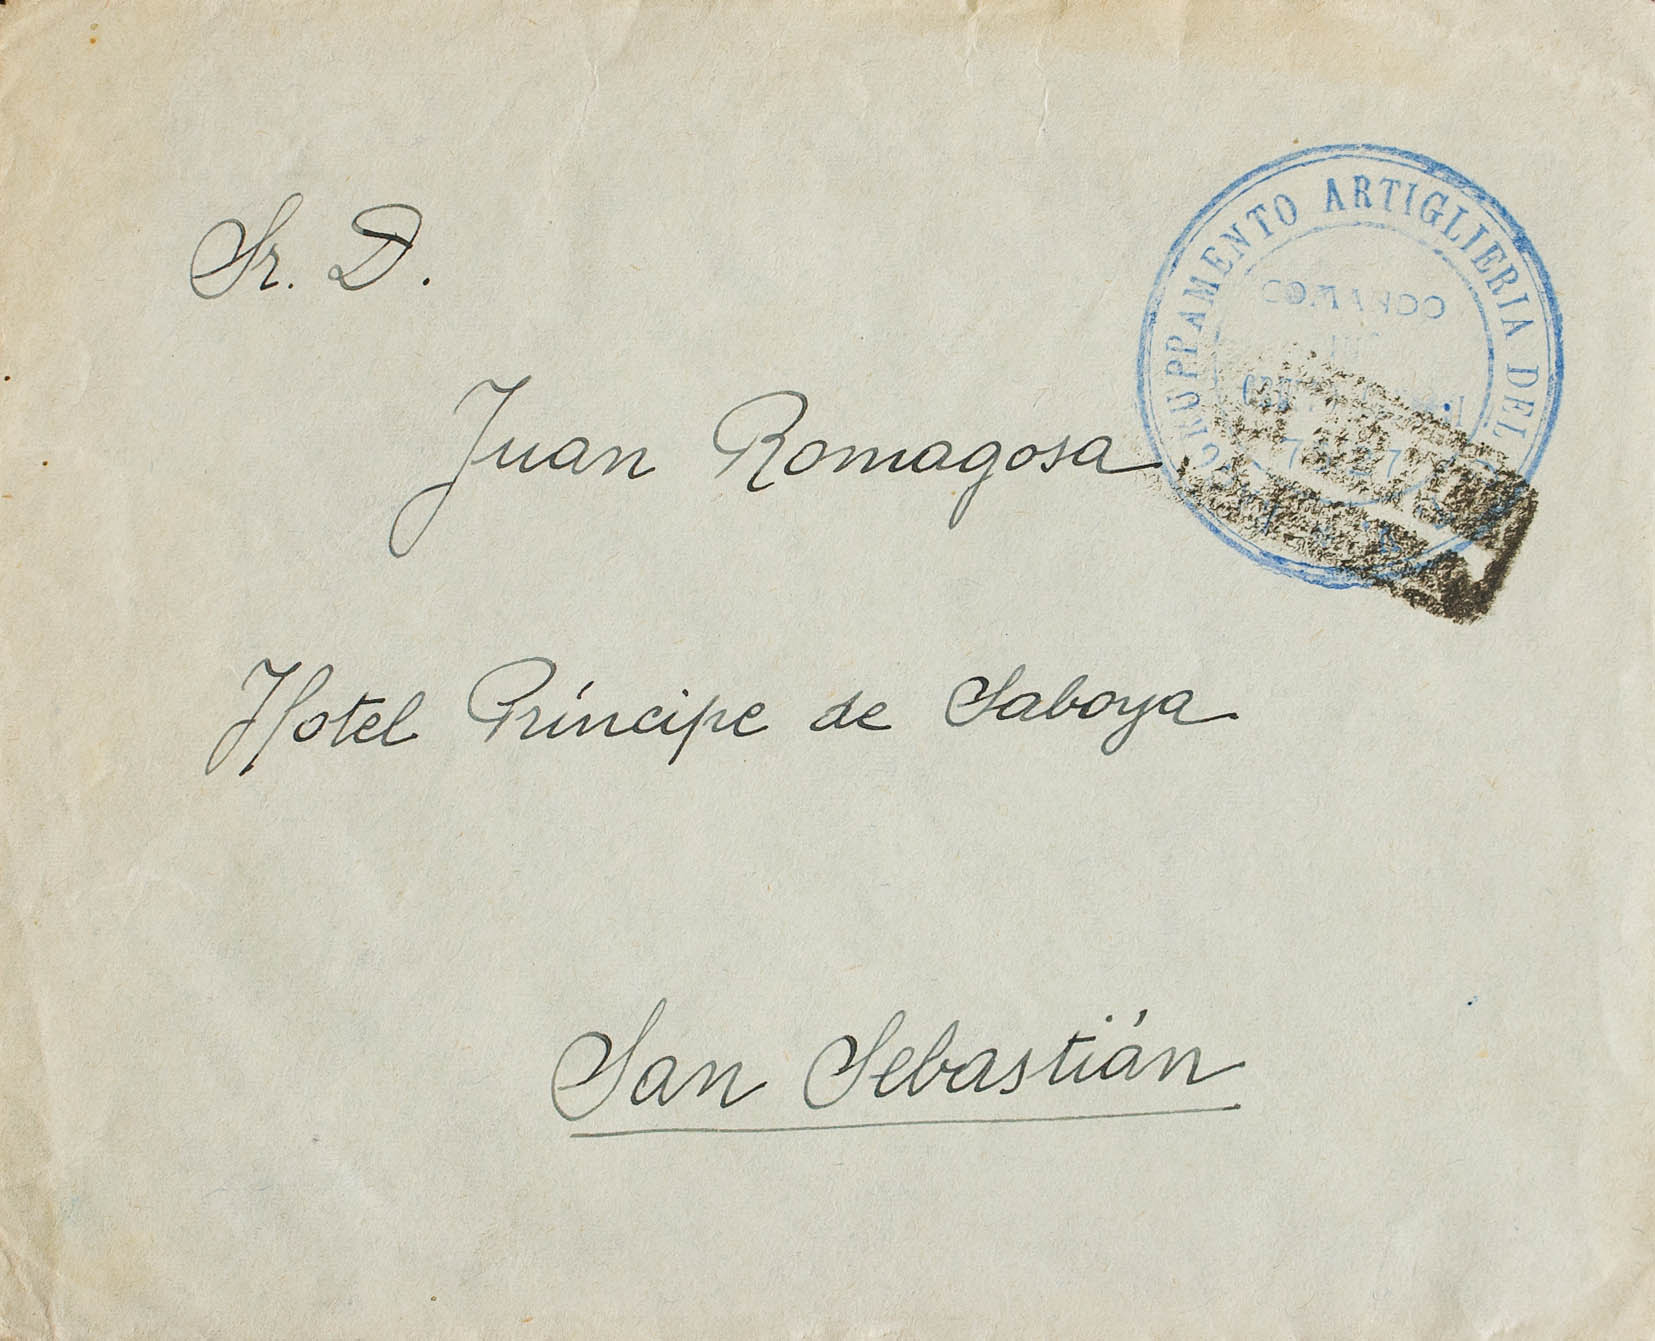 Sr. D.
Juan Romagosa
Hotel Príncipe de Saboya
San Sebastián
RAGGRUPPAMENTO ARTIGLIERIA DEL
COMANDO